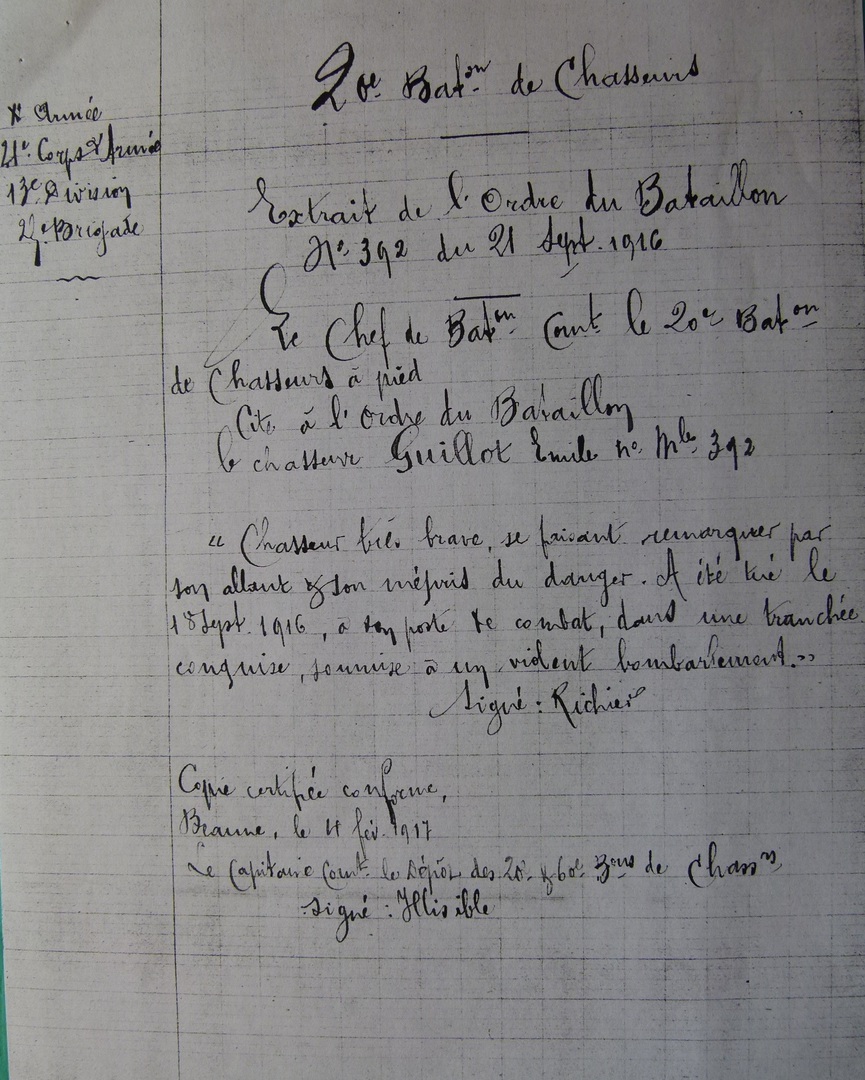 20e Baton de Chasseurs
Xe Armée
21e Corps d'Armée
13e Division
2e Brigade
Extrait de l'Ordre du Bataillon
No 392 du 21 Sept. 1916
Le Chef de Baton Comt le 20e Baton
de Chasseurs à pied
Cite à l'Ordre du Bataillon
le chasseur Guillot Emile no Mle 392
"Chasseur très brave, se faisant remarquer par
son allant & son mépris du danger. A été tué le
18 Sept. 1916, à son poste de combat, dans une tranchée
conquise, soumise à un violent bombardement."
Signé : Richier
Copie certifiée conforme,
Beaune, le 4 fév. 1917
Le Capitaine Comt le Dépôt des 20e & 60e Bons de Chassrs
Signé : Illisible